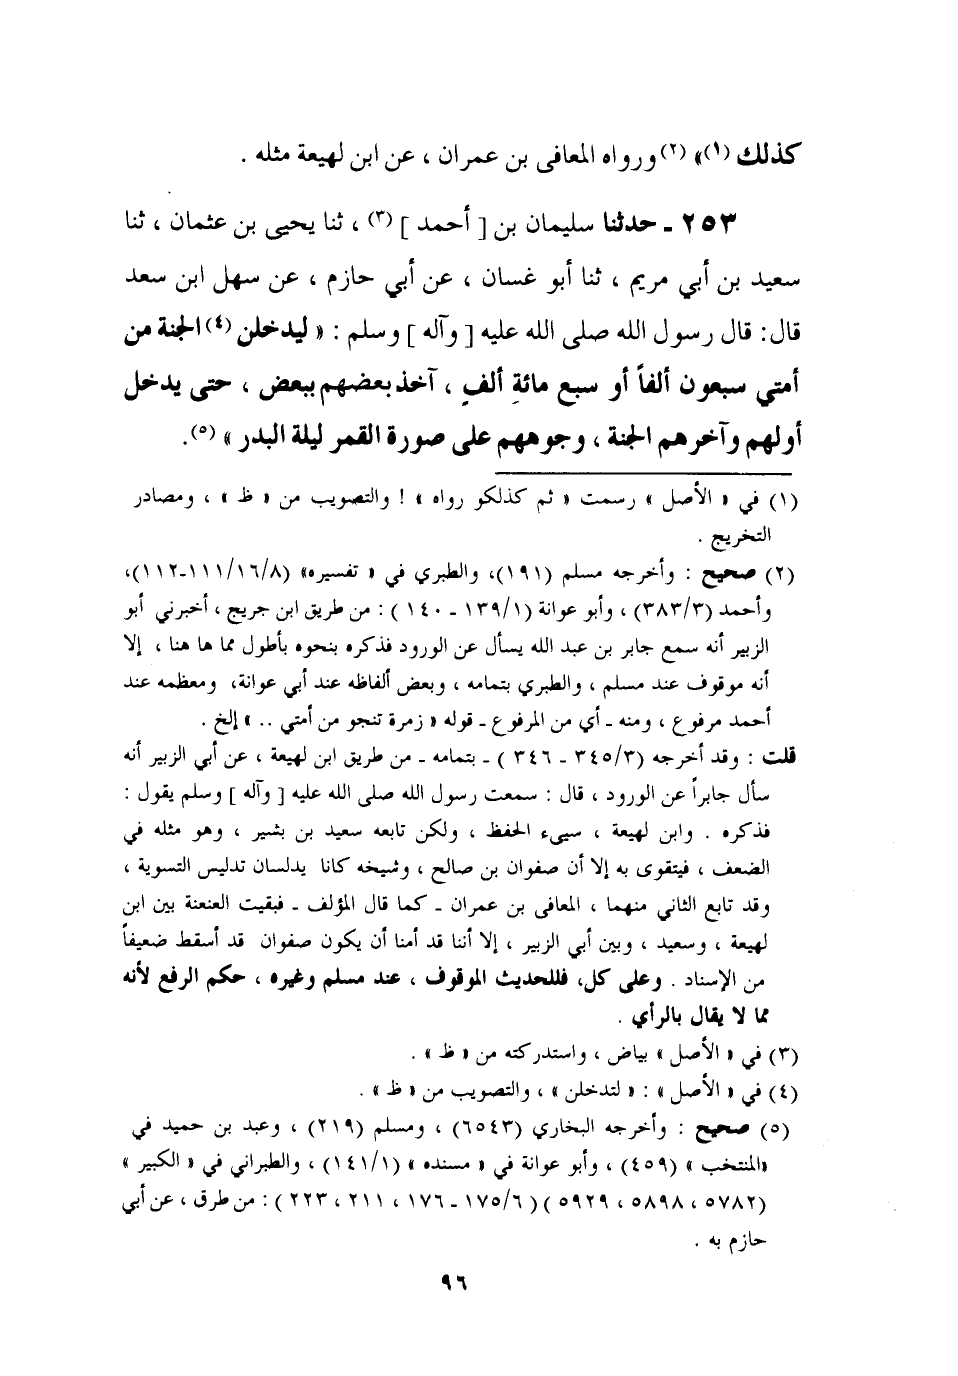 كذلك (١)» (٢) ورواه المعافى بن عمران ، عن ابن لهيعة مثله .
٢٥٣ - حدثنا سليمان بن [ أحمد ] (٣) ، ثنا يحيى بن عثمان ، ثنا
سعيد بن أبي مريم ، ثنا أبو غسان ، عن أبي حازم ، عن سهل ابن سعد
قال: قال رسول الله صلى الله عليه [ وآله ] وسلم : « ليدخلن (٤) الجنة من
أمتي سبعون ألفاً أو سبع مائةِ ألفٍ ، آخذ بعضهم ببعض ، حتى يدخل
أولهم وآخرهم الجنة ، وجوههم على صورة القمر ليلة البدر » (٥).
(١) في « الأصل » رسمت « ثم كذلكو رواه » ! والتصويب من « ظ » ، ومصادر
التخريج .
(٢) صحيح : وأخرجه مسلم (١٩١)، والطبري في « تفسيره» (١١١/١٦/٨-١١٢)،
وأحمد (٣٨٣/٣) ، وأبو عوانة (١٣٩/١ - ١٤٠ ) : من طريق ابن جريج ، أخبرني أبو
الزبير أنه سمع جابر بن عبد الله يسأل عن الورود فذكره بنحوه بأطول مما ها هنا ، إلا
أنه موقوف عند مسلم ، والطبري بتمامه ، وبعض ألفاظه عند أبي عوانة، ومعظمه عند
أحمد مرفوع ، ومنه - أي من المرفوع - قوله « زمرة تنجو من أمتي .. » إلخ .
قلت : وقد أخرجه (٣٤٥/٣ - ٣٤٦ ) - بتمامه - من طريق ابن لهيعة ، عن أبي الزبير أنه
سأل جابراً عن الورود ، قال : سمعت رسول الله صلى الله عليه [ وآله ] وسلم يقول :
فذكره . وابن لهيعة ، سييء الحفظ ، ولكن تابعه سعيد بن بشير ، وهو مثله في
الضعف ، فيتقوى به إلا أن صفوان بن صالح ، وشيخه كانا يدلسان تدليس التسوية ،
وقد تابع الثاني منهما ، المعافى بن عمران - كما قال المؤلف - فبقيت العنعنة بين ابن
لهيعة ، وسعيد ، وبين أبي الزبير ، إلا أننا قد أمنا أن يكون صفوان قد أسقط ضعيفاً
من الإسناد . وعلى كل، فللحديث الموقوف ، عند مسلم وغيره ، حكم الرفع لأنه
مما لا يقال بالرأي .
(٣) في « الأصل » بياض ، واستدركته من « ظ » .
(٤) في « الأصل » : « لتدخلن » ، والتصويب من « ظ » .
(٥) صحيح : وأخرجه البخاري (٦٥٤٣) ، ومسلم (٢١٩) ، وعبد بن حميد في
«المنتخب » (٤٥٩) ، وأبو عوانة في « مسنده » (١٤١/١) ، والطبراني في « الكبير »
(٥٧٨٢ ، ٥٨٩٨ ، ٥٩٢٩ )( ١٧٥/٦ - ١٧٦ ، ٢١١ ، ٢٢٣ ) : من طرق ، عن أبي
حازم به .
٩٦